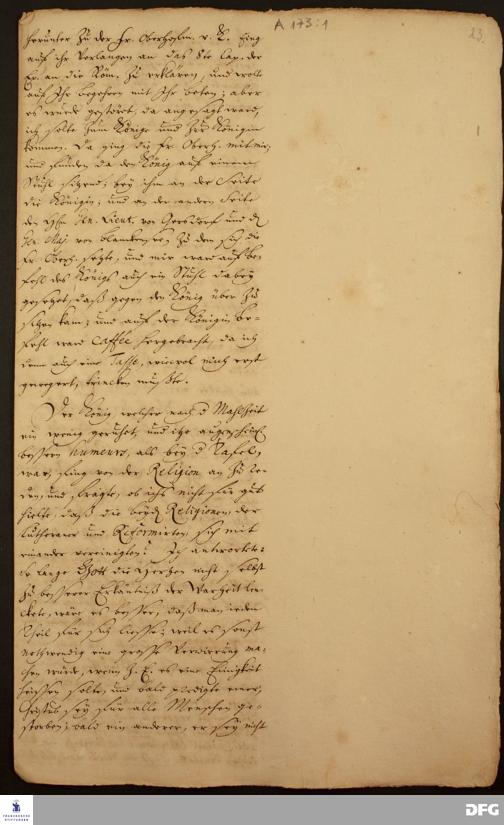 A 173:1
23.
herunter zu der Fr. Oberhofm. v. K. fing
auf ihr Verlangen an das 8te Cap. der
Ep. an die Röm. zu erklären, und wolte
auf Ihr begehren mit Ihr beten; aber
es wurde gestöret, da angesagt ward,
ich solte zum Könige und zur Königin
kommen. Da ging die Fr. Oberh. mit mir,
und funden da den König auf einem
Stuhl sitzend; bey ihm an der Seite
die Königin; und an der andern Seite
der Gen. Lieut. von Gersdorf und d
Gen. Maj. von blanckensee, zu den sich die
Fr. Oberh. setzte, und mir ward auf be-
fehl des Königs auch ein Stuhl dabey
gesetzet, daß gegen den König über zu
sitzen kam; und auf der Königin be-
fehl ward Caffee hergebracht, da ich
denn auch eine Tasse, wiewol mich erst
gewegert, trincken muste.
Der König, welcher nach d Mahlzeit
ein wenig geruhet, und itzo augenscheinl.
bessern humeurs, als bey d Tafel,
war, fing von der Religion an zu re-
den, und fragte, ob ichs nicht für gut
hielte, daß die beyde Religionen, der
Lutheraner und Reformirten, sich mit
einander vereinigten? Ich antwortete:
So lange Gott die Hertzen nicht selbst
zu besserer Erkäntniß der Warheit len-
ckete, wäre es besser, daß man ieden
Theil für sich liesse; weil es sonst
nothwendig eine grosse Verwirrung ma-
chen würde, wenn z. E. es eine Einigkeit
heissen solte, und bald predigte einer,
Christus sey für alle Menschen ge-
storben; bald ein anderer, er sey nicht
FRANCKESCHE
STIFTUNGEN
DFG